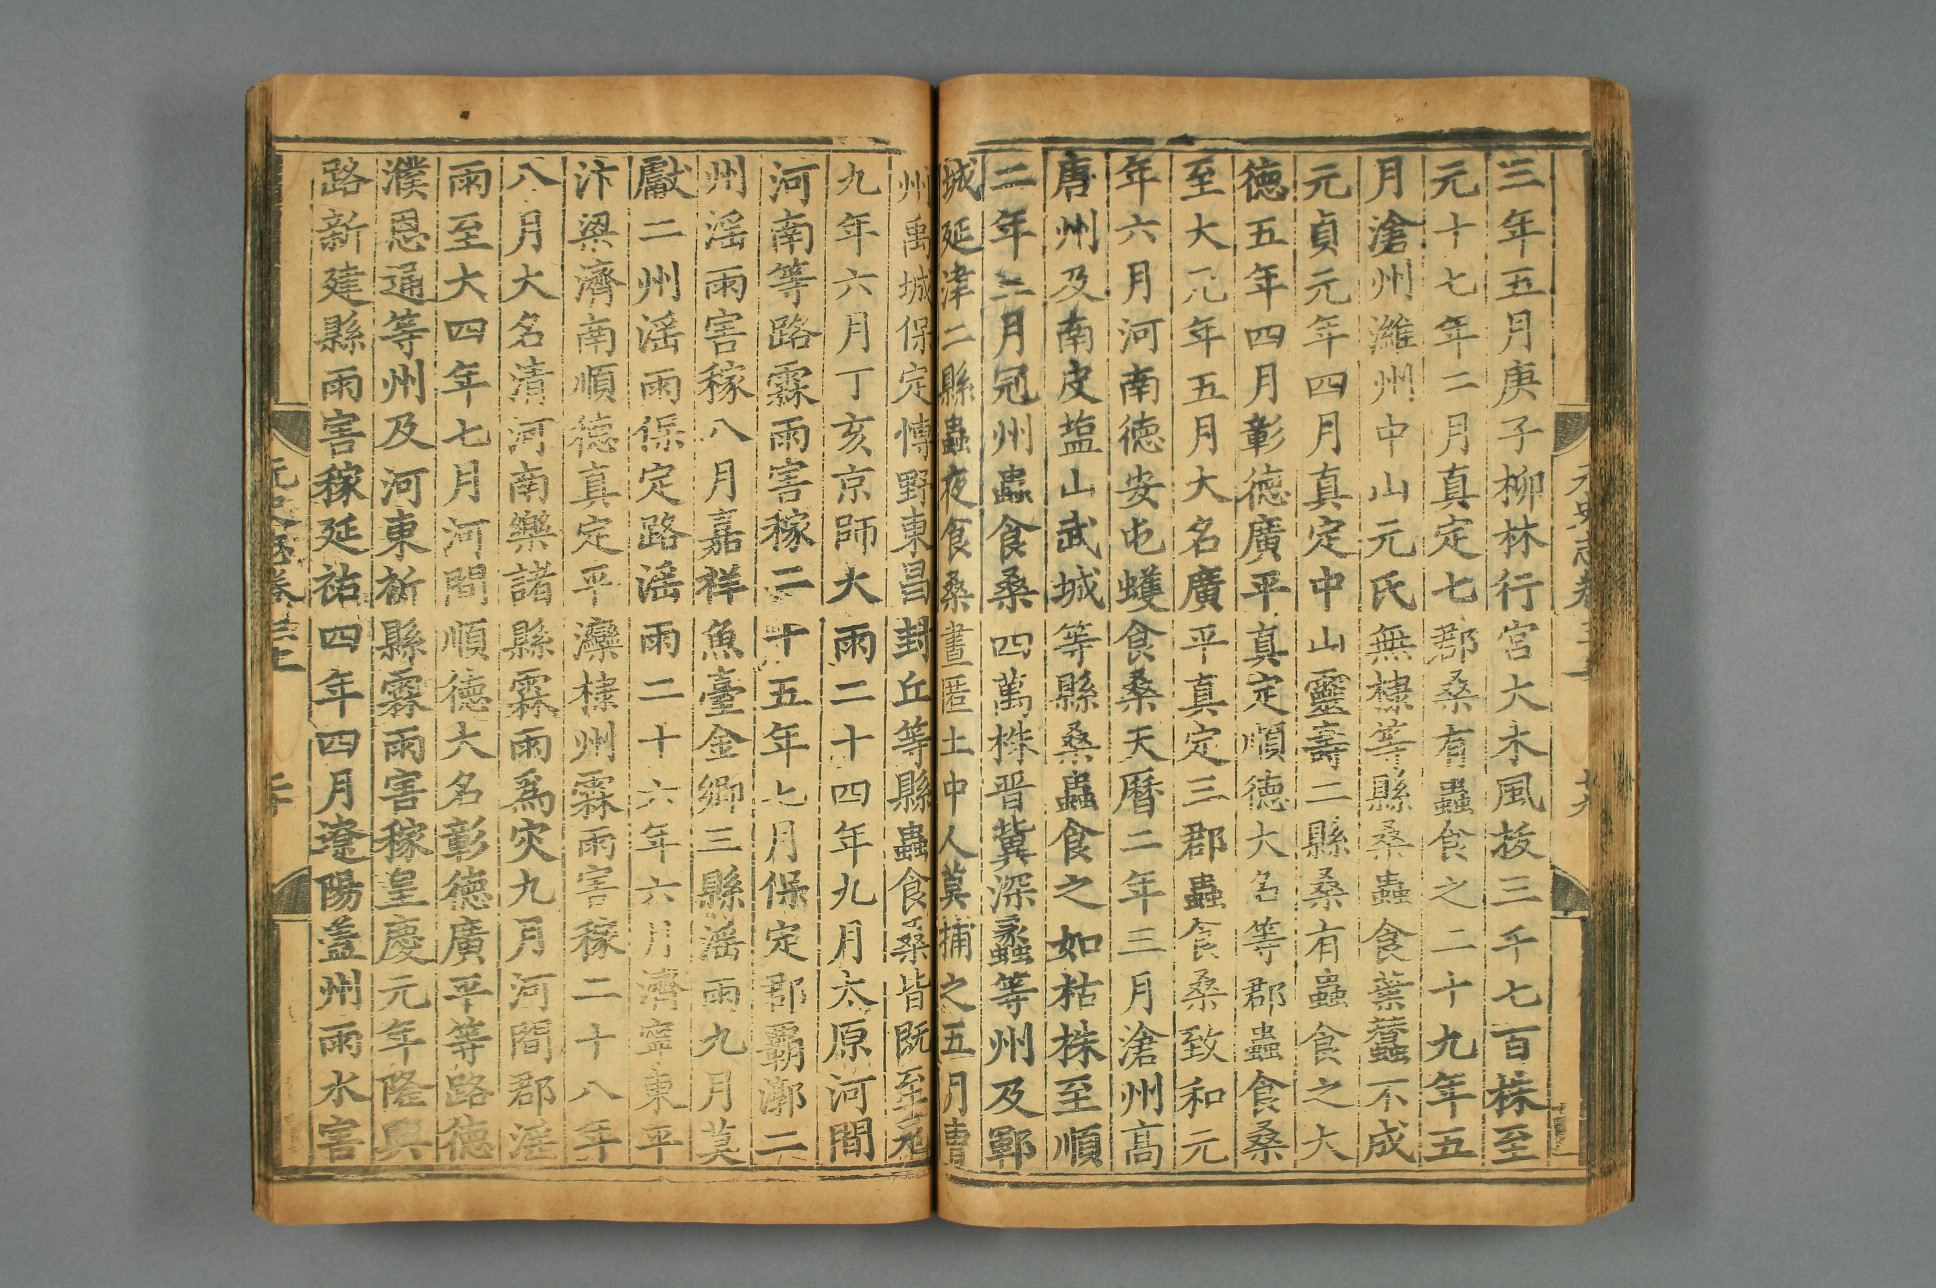 三年五月庚子柳林行宮大木風拔三千七百株至
元十七年二月真定七郡桑有蟲食之二十九年五
月滄州濰州中山元氏無棣等縣桑蟲食葉蠶不成
元貞元年四月真定中山靈壽二縣桑有蟲食之大
德五年四月彰德廣平真定順德大名等郡蟲食桑
至大元年五月大名廣平真定三郡蟲食桑致和元
年六月河南德安屯蠖食桑天曆二年三月滄州高
唐州及南皮塩山武城等縣桑蟲食之如枯株至順
二年三月冠州蟲食桑四萬株晋冀深蠡等州及鄆
城延津二縣蟲夜食桑晝匿土中人莫捕之五月曹
州禹城保定博野東昌封丘等縣蟲食桑皆既至元
九年六月丁亥京師大雨二十四年九月太原河間
河南等路霖雨害稼二十五年七月保定郡霸漷二
州滛雨害稼八月嘉祥魚臺金鄉三縣滛雨九月莫
獻二州滛雨保定路滛雨二十六年六月濟寧東平
汴梁濟南順德真定平灤棣州霖雨害稼二十八年
八月大名清河南樂諸縣霖雨為灾九月河間郡滛
雨至大四年七月河間順德大名彰德廣平等路德
濮恩通等州及河東祈縣霖雨害稼皇慶元年隆興
路新建縣雨害稼延祐四年四月遼陽盖州雨水害
元史志卷三上